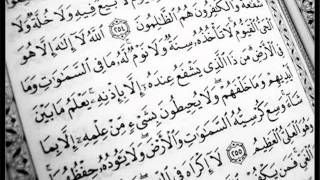 شَفَٰعَةٌ وَٱلْكَٰفِرُونَ هُمُ ٱلظَّٰلِمُونَ ٢٥٤ ٱللَّهُ لَآ إِلَٰهَ إِلَّا هُوَ
ٱلْحَىُّ ٱلْقَيُّومُ لَا تَأْخُذُهُۥ سِنَةٌ وَلَا نَوْمٌ لَّهُۥ مَا فِى ٱلسَّمَٰوَٰتِ وَمَا
فِى ٱلْأَرْضِ مَن ذَا ٱلَّذِى يَشْفَعُ عِندَهُۥٓ إِلَّا بِإِذْنِهِۦ يَعْلَمُ مَا بَيْنَ
أَيْدِيهِمْ وَمَا خَلْفَهُمْ وَلَا يُحِيطُونَ بِشَىْءٍ مِّنْ عِلْمِهِۦٓ إِلَّا بِمَا
شَآءَ وَسِعَ كُرْسِيُّهُ ٱلسَّمَٰوَٰتِ وَٱلْأَرْضَ وَلَا يَـُٔودُهُۥ حِفْظُهُمَا
وَهُوَ ٱلْعَلِىُّ ٱلْعَظِيمُ ٢٥٥ لَآ إِكْرَاهَ فِى